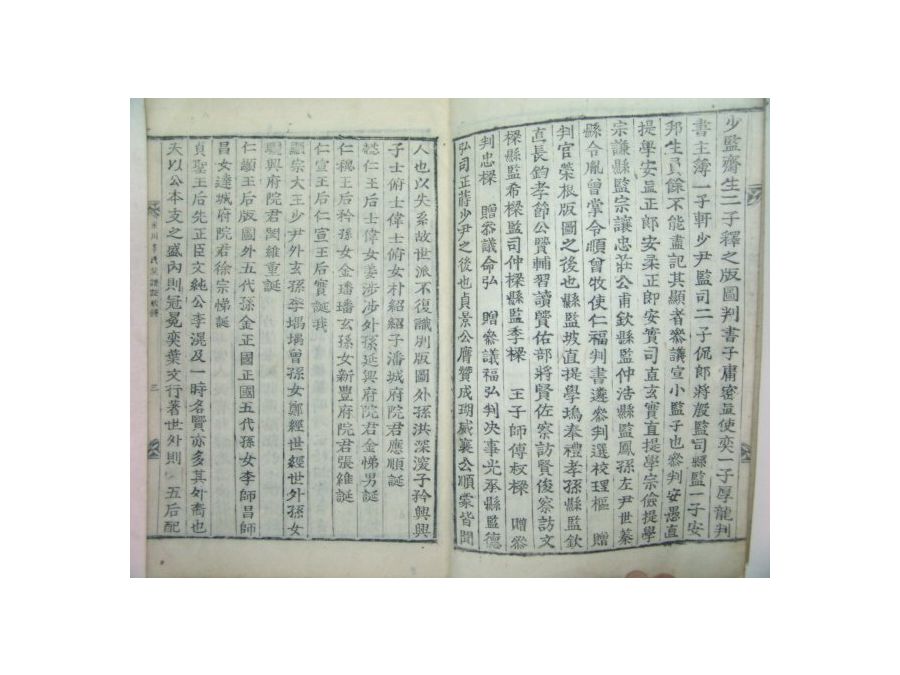 少監齋生二子釋之版圖判書子庸密直使奕一子厚龍判
書主簿一子軒少尹監司二子侃郎將殷監司縣監一子安
邦生員餘不能盡記其顯者叅議宣小監子也叅判安愚直
提學安直正郎安柔正郎安實司直玄實直提學宗儉提學
宗謙縣監宗讓忠莊公甫欽縣監仲浩縣監鳳孫左尹世綦
縣令胤曾掌令順曾牧使仁福判書遴叅判選校理樞 贈
判官榮根版圖之後也縣監坡直提學塢奉禮孝孫縣監欽
直長鈞孝節公賢輔習讀賢佑部將賢佐察訪賢俊察訪文
樑縣監希樑監司仲樑縣監季樑 王子師傅叔樑 贈叅
判忠樑 贈叅議命弘 贈叅議福弘判决事光承縣監德
弘司正蒔少尹之後也貞景公膺贊成瑚威襄公順蒙皆聞
人也以失系故世派不復識別版圖外孫洪深深子矜興興
子士俯士偉士俯女朴紹紹子潘城府院君應順誕
懿仁王后士偉女姜涉涉外孫延興府院君金悌男誕
仁穆王后矜孫女金璠璠玄孫女新豐府院君張維誕
仁宣王后仁宣王后實誕我
顯宗大王少尹外玄孫李堣堣曾孫女鄭經世經世外孫女
驪興府院君閔維重誕
仁顯王后版圖外五代孫金正國正國五代孫女李師昌師
昌女達城府院君徐宗悌誕
貞聖王后先正臣文純公李滉及一時名賢亦多其外裔也
夫以公本支之盛內則冠冕奕葉文行著世外則 五后配
永川李氏
三